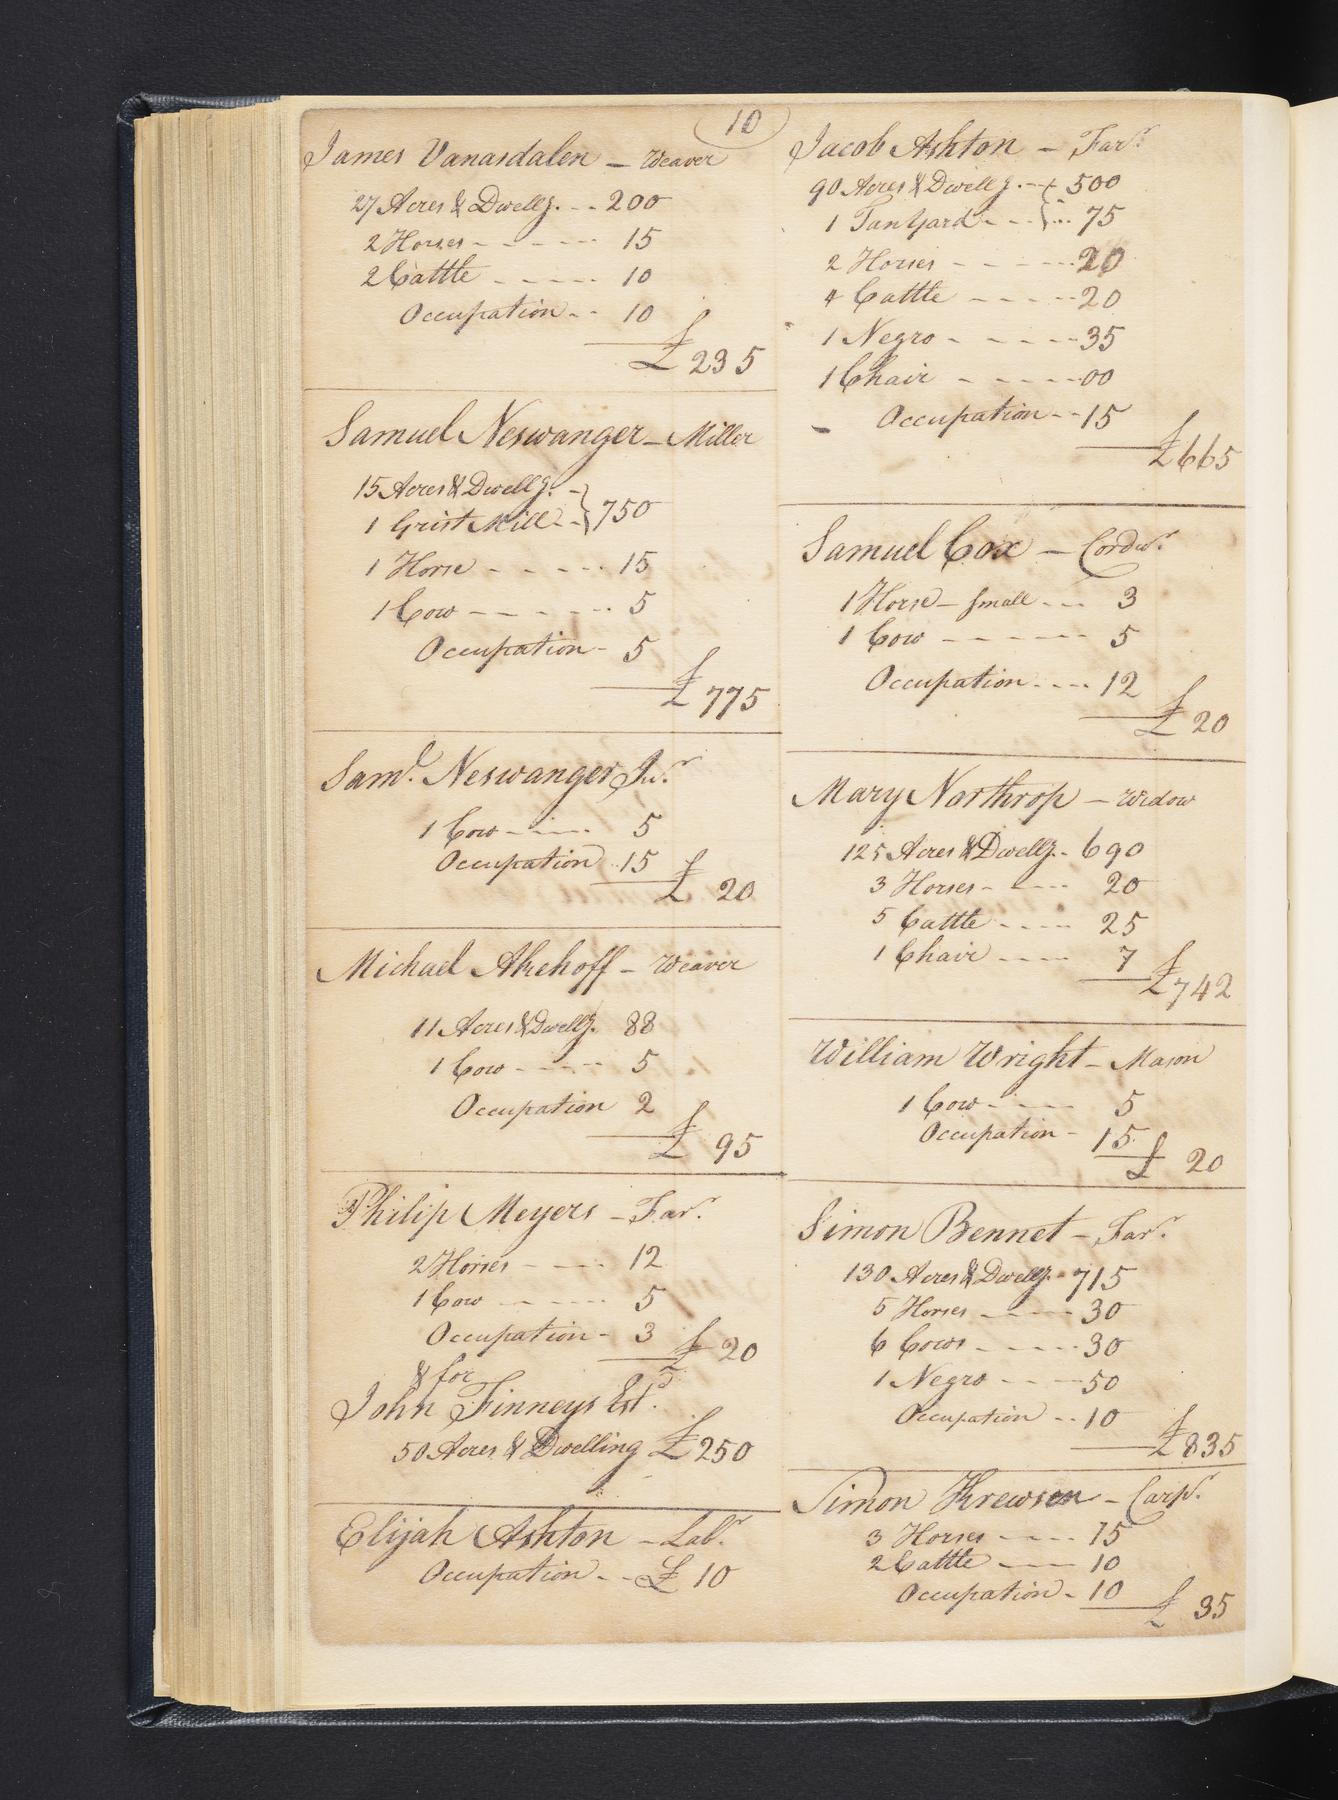 10
James Vanarsdalen — Weaver
27 Acres & Dwellg. - - 200
2 Horses - - - - - - 15
2 Cattle - - - - - 10
Occupation - - 10
£ 235
Samuel Neswanger — Miller
15 Acres & Dwellg. -
1 Grist Mill - - } 750
1 Horse - - - - - 15
1 Cow - - - - - 5
Occupation - 5
£ 775
Saml. Neswanger Jur.
1 Cow - - - - 5
Occupation - 15
£ 20
Michael Akehoff — Weaver
11 Acres & Dwellg. 88
1 Cow - - - - - 5
Occupation 2
£ 95
Philip Meyers — Far.r
2 Horses - - - - 12
1 Cow - - - - - 5
Occupation - 3
£ 20
& for
John Finneys Estd.
50 Acres & Dwelling £ 250
Elijah Ashton — Labr.
Occupation - - £ 10
Jacob Ashton — Far.r
90 Acres & Dwellg. - - { 500
1 Tan Yard - - - } - - 75
2 Horses - - - - - 20
4 Cattle - - - - - 20
1 Negro - - - - - 35
1 Chair - - - - - 00
Occupation - - 15
£ 665
Samuel Cox — Cordwr.
1 Horse — small - - - 3
1 Cow - - - - - - 5
Occupation - - - - 12
£ 20
Mary Northrop — Widow
125 Acres & Dwellg. - 690
3 Horses - - - - - 20
5 Cattle - - - - 25
1 Chair - - - - 7
£ 742
William Wright — Mason
1 Cow - - - - - 5
Occupation - 15
£ 20
Simon Bennet — Far.r
130 Acres & Dwellg. - 715
5 Horses - - - - - 30
6 Cows - - - - - 30
1 Negro - - - - 50
Occupation - - 10
£ 835
Simon Krewsen — Carpr.
3 Horses - - - - 15
2 Cattle - - - - 10
Occupation - 10
£ 35